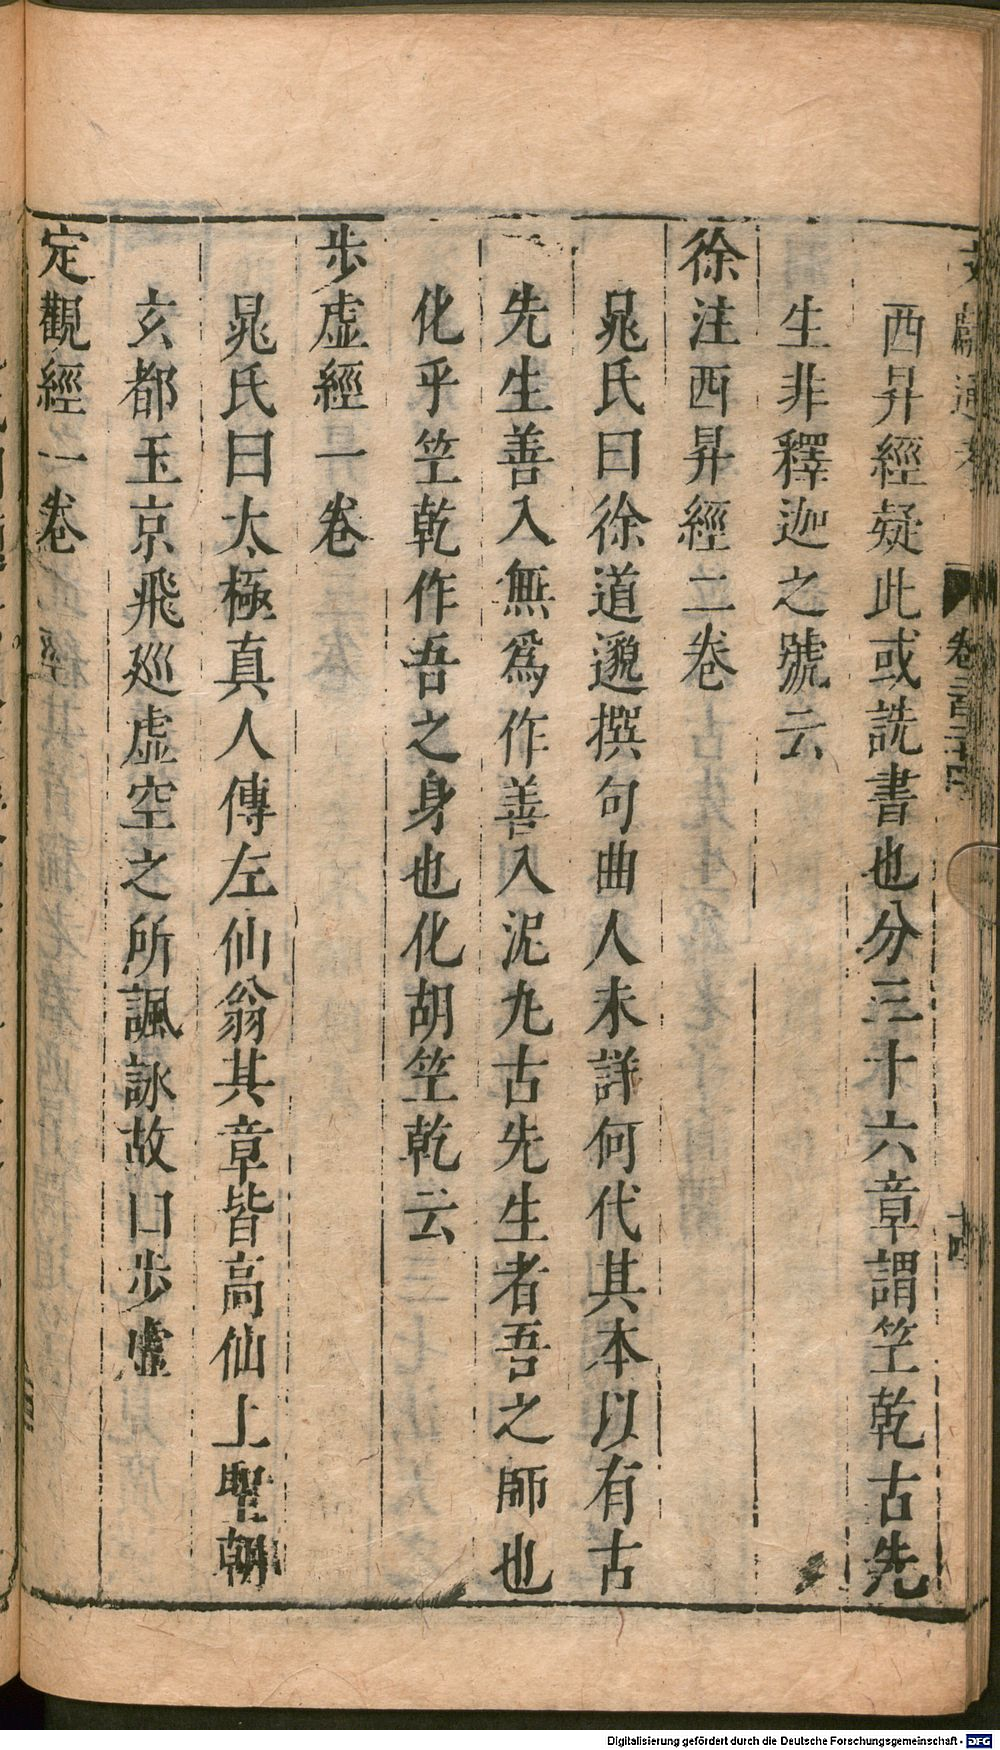 西昇經疑此或詵書也分三十六章謂笁乾古先
生非釋迦之號云
徐注西昇經二卷
晁氏曰徐道邈撰句曲人未詳何代其本以有古
先生善入無爲作善入泥九古先生者吾之師也
化乎笁乾作吾之身也化胡笁乾云
步虛經一卷
晁氏曰太極真人傳左仙翁其章皆高仙上聖朝
玄都玉京飛廵虛空之所諷詠故曰步虛
定觀經一卷
文獻通考
卷二百二十四
十四
Digitalisierung gefördert durch die Deutsche Forschungsgemeinschaft - DFG